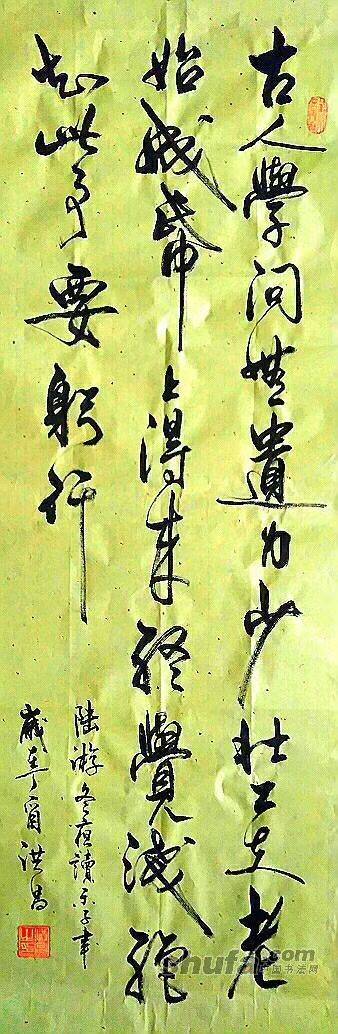 古人學問無遺力少壯工夫老
始成帋上得來終覺淺絕
知此事要躬行
陸游冬夜讀示子聿
歲寅洪昌
shufa.com
中国书法网